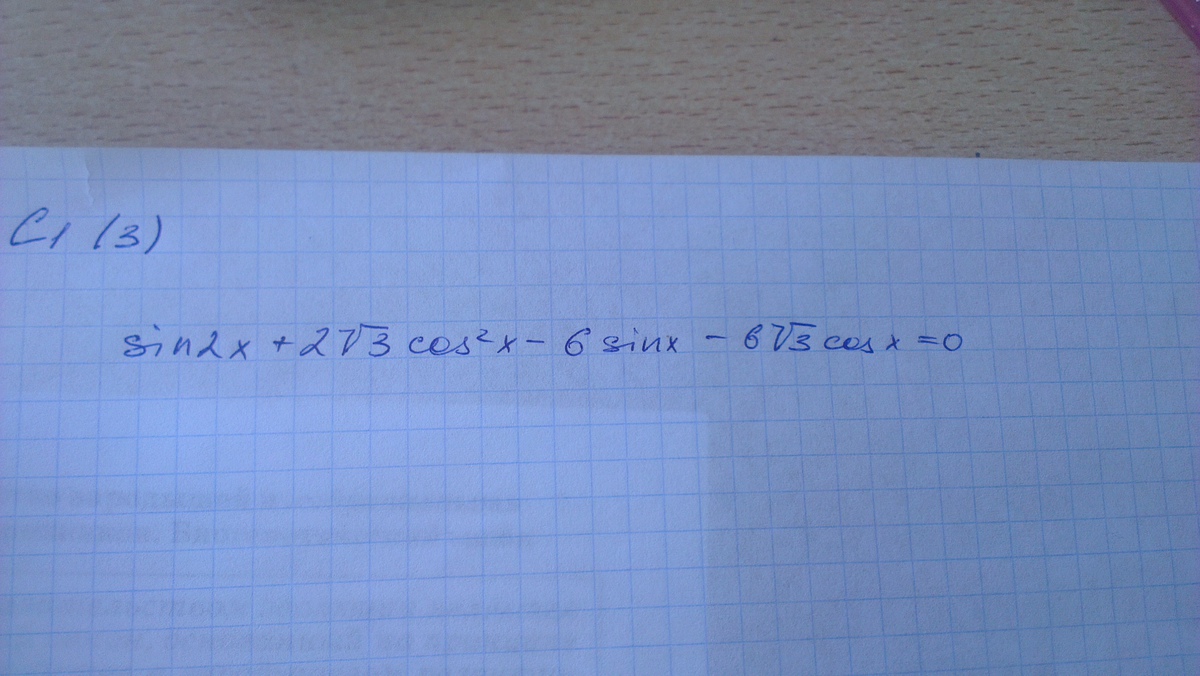 C1 (3)
sin2x + 2√3 cos²x - 6 sinx - 6√3 cos x = 0